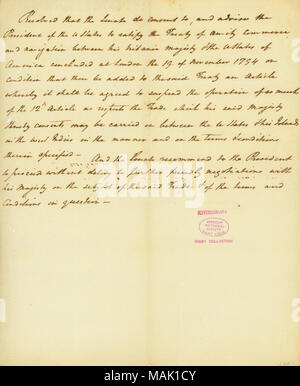 Resolved that the Senate do consent to, and advise the
President of the U States to ratify the Treaty of Amity Commerce
and navigation between his Britanic majesty & the U States of
America concluded at London the 19. of November 1794 on
condition that there be added to the said Treaty an Article
whereby it shall be agreed to suspend the operation of so much
of the 12th Article as respects the Trade which his said majesty
thereby consents may be carried on between the U States & his Islands
in the West Indies in the manner and on the terms & conditions
therein specified —
And the Senate recommend to the President
to proceed without delay to further friendly negotiations with
his Majesty on the subject of the said Trade & of the terms and
conditions in question —
MISSOURI
HISTORICAL
SOCIETY
SAINT LOUIS
alamy
Image ID: MAK1CY
www.alamy.com